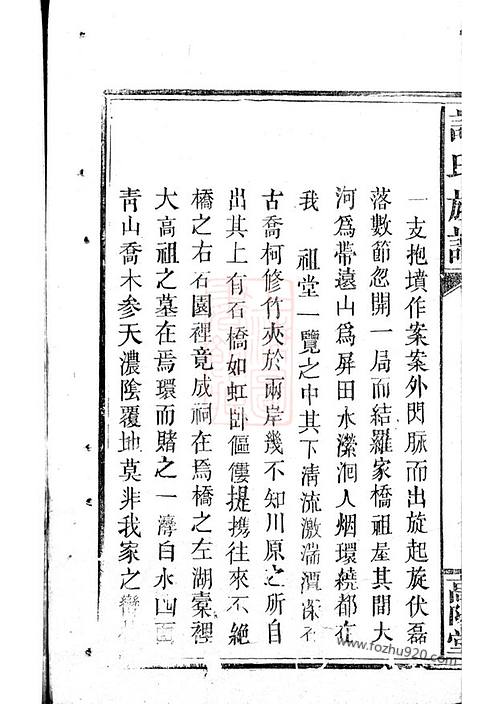 一支抱墳作案案外閃脈而出旋起旋伏磊
落數節忽開一局而結羅家橋祖屋其間大
河為帶遠山為屏田水瀠洄人烟環繞都在
我 祖堂一覽之中其下清流激湍潭深
古喬柯修竹夾於兩岸幾不知川原之所自
出其上有石橋如虹卧傴僂提携往來不絕
橋之右石園裡竟成祠在焉橋之左湖橐裡
大高祖之墓在焉環而賭之一灣白水四面
青山喬木參天濃陰覆地莫非我家之
氏族譜
高陽堂
www.fozhu920.com